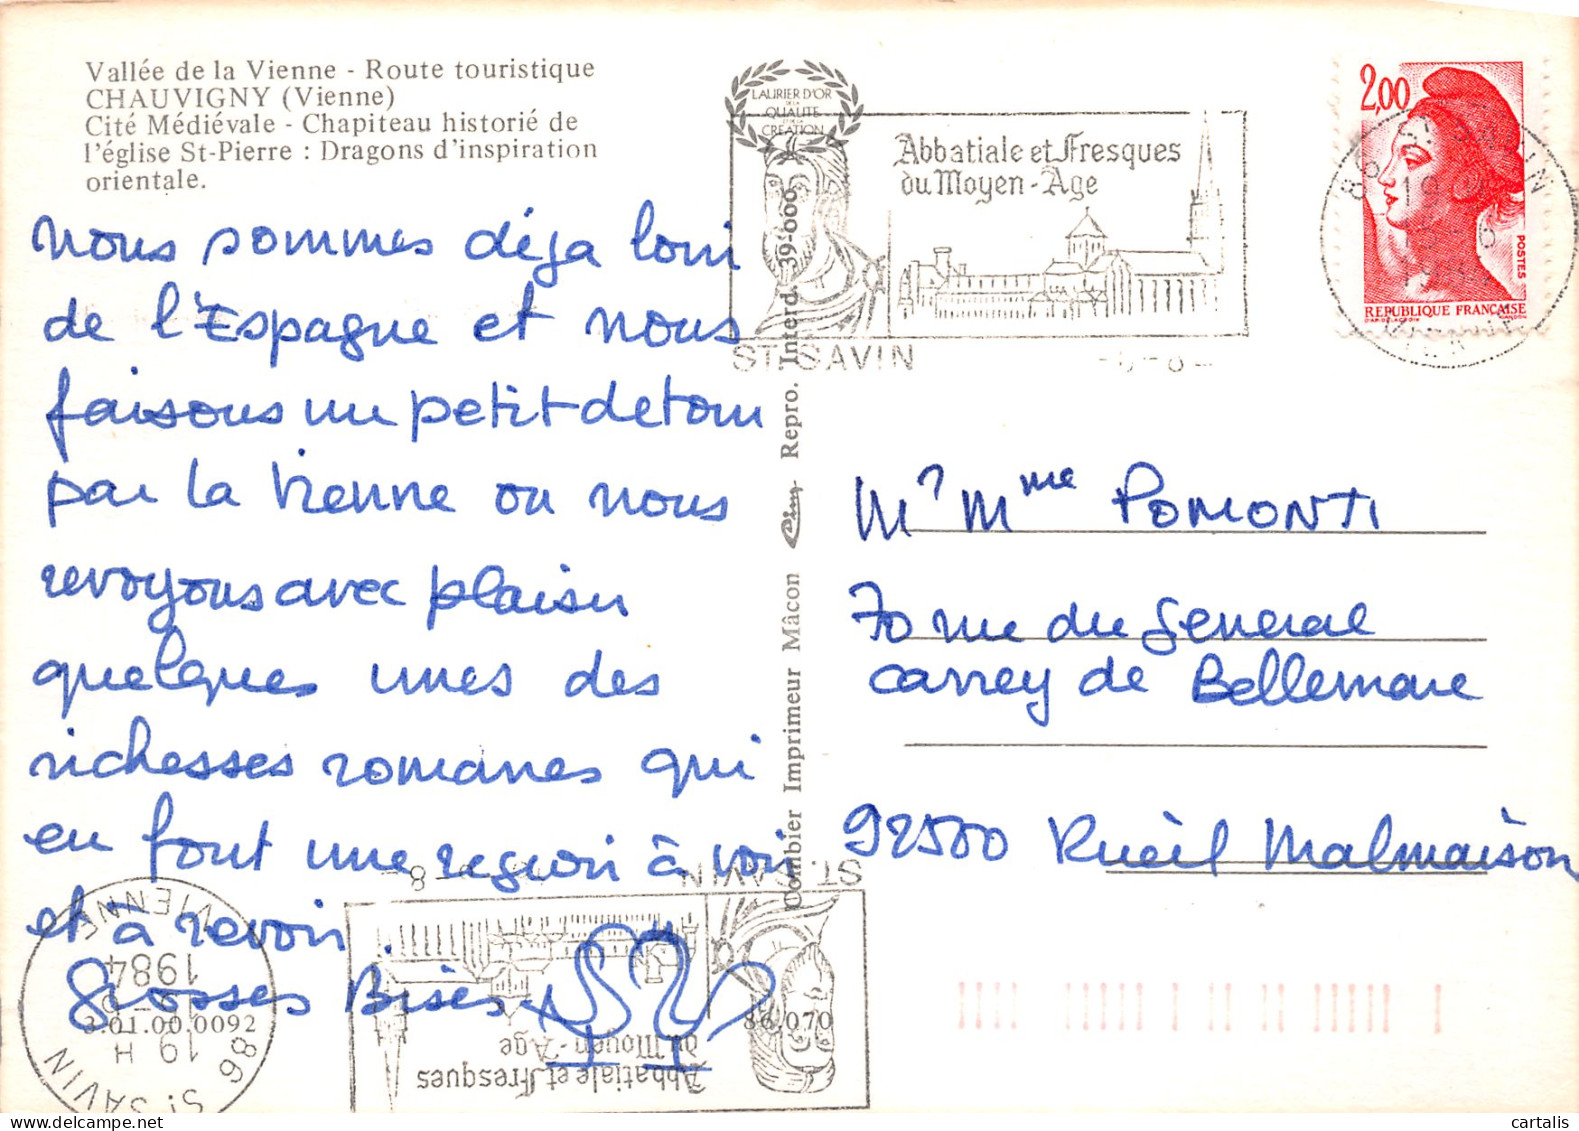 Vallée de la Vienne - Route touristique
CHAUVIGNY (Vienne)
Cité Médiévale - Chapiteau historié de
l'église St-Pierre : Dragons d'inspiration
orientale.
nous sommes déja loin
de l'Espagne et nous
faisons un petit detour
par la Vienne ou nous
revoyons avec plaisir
quelques unes des
richesses romanes qui
en font une region à voir
et à revoir.
Grosses Bises
3.01.00.0092
86.070
Combier Imprimeur Mâcon
Repro. Interd. 39-000
LAURIER D'OR
DE LA
QUALITE
CREATION
Abbatiale et Fresques
du Moyen-Age
ST. SAVIN
2,00
POSTES
REPUBLIQUE FRANÇAISE
86 ST SAVIN
M? Mme POMONTI
70 rue du General
Carrey de Bellemare
92500 Rueil Malmaison
ST. SAVIN
Abbatiale et Fresques
du Moyen-Age
86 ST SAVIN
19 H
1984
VIENNE
cartalis
www.delcampe.net